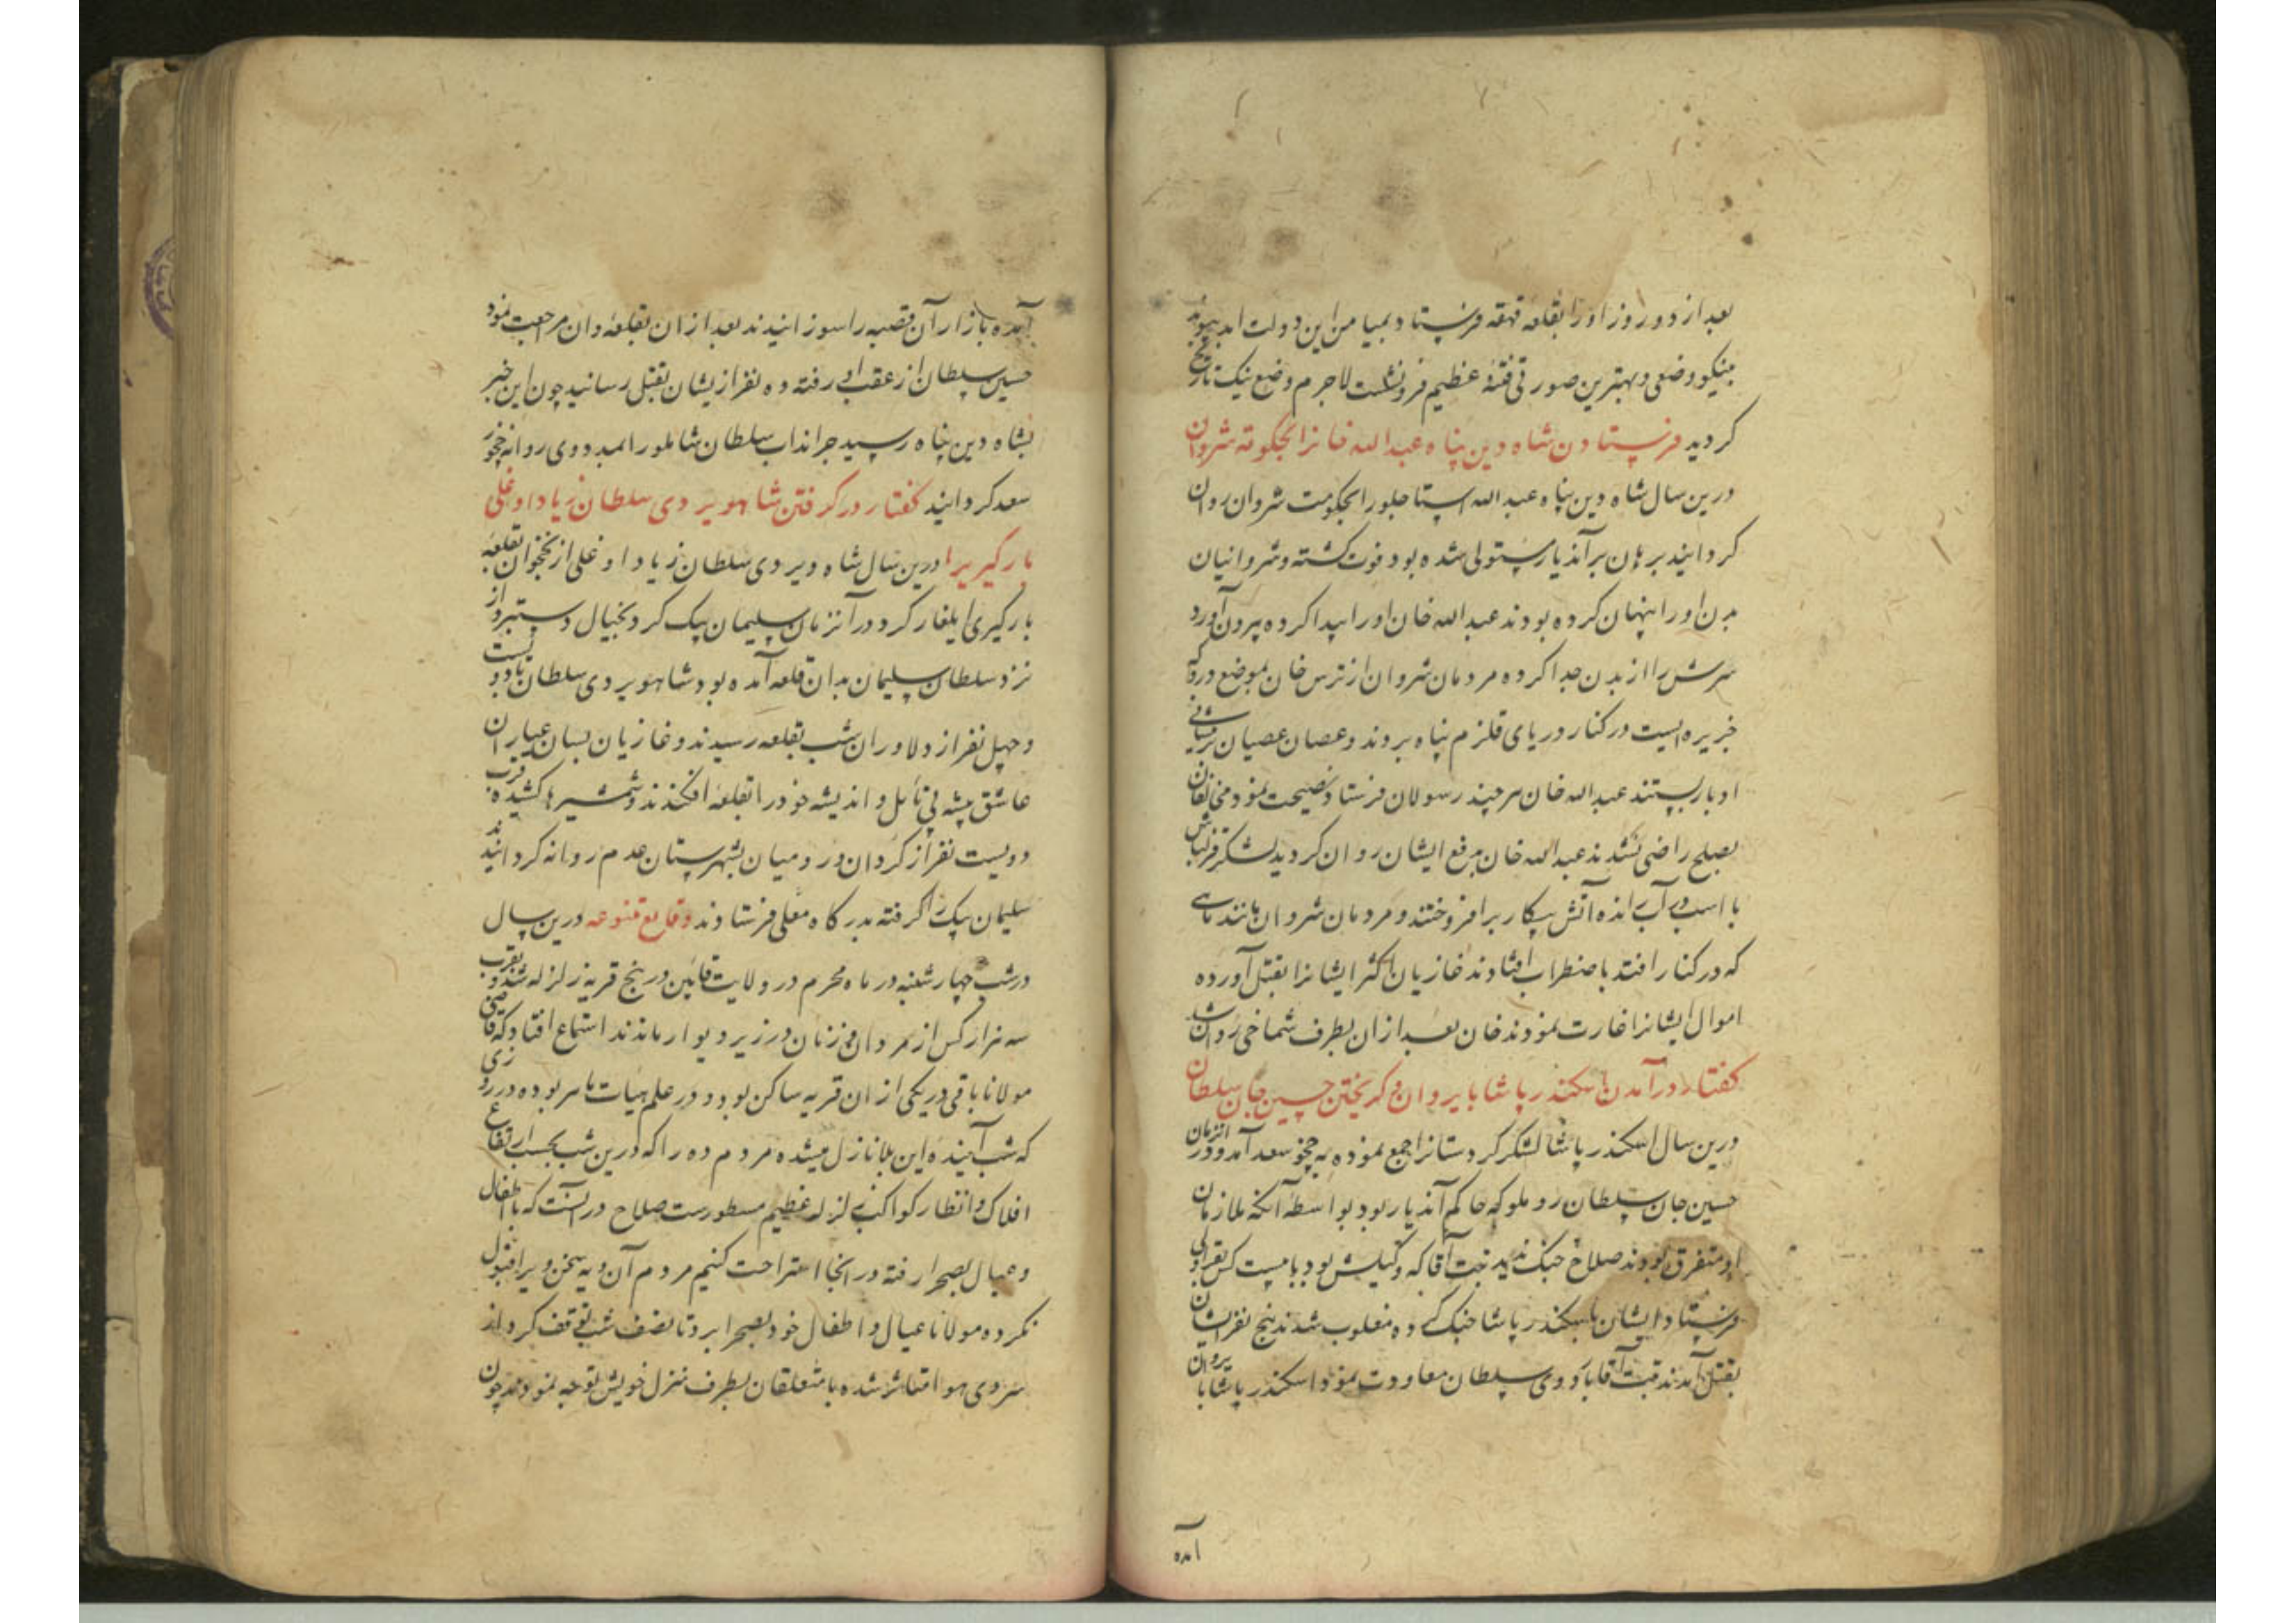 بعد از دو روز او را بقلعه قهقهه فرستاد و بمیامن این دولت ابد پیوند
بنیکو وضعی و بهترین صورتی فتنهٔ عظیم فرونشست لاجرم وضع نیک تاریخ
کردید فرستادن شاه دین پناه عبد الله خانرا بحکومة شروان
درین سال شاه دین پناه عبد الله استاجلو را بحکومت شروان روان
کردانید برهان بر آندیار مستولی شده بود فوت کشته و شروانیان
بدن او را پنهان کرده بودند عبد الله خان او را پیدا کرده بیرون آورد
سرش را از بدن جدا کرده مردمان شروان از ترس خان بموضع در که
جزیره ایست در کنار دریای قلزم پناه بردند و عصان عصیان بر پیشانی
ادبار بستند عبد الله خان هر چند رسولان فرستاد و نصیحت نمود مخالفان
بصلح راضی نشدند عبد الله خان بدفع ایشان روان کردید لشکر قزلباش
با اسب در آب رانده آتش پیکار برافروختند و مردمان شروان مانند ماهی
که در کنار افتد باضطراب افتادند غازیان اکثر ایشانرا بقتل آورده
اموال ایشانرا غارت نمودند خان بعد از ان بطرف شماخی روان شد
کفتار در آمدن اسکندر پاشا بایروان و کریختن حسین جان سلطان
درین سال اسکندر پاشا لشکر کردستانرا جمع نموده به چخور سعد آمد و در انزمان
حسین جان سلطان روملو که حاکم آندیار بود بواسطه آنکه ملازمان
او متفرق بودند صلاح جنک ندید آقا که وکیلش بود با بیست کس بقراولی
فرستاد ایشان با اسکندر پاشا جنک کرده مغلوب شدند پنج نفر ایشان
بقتل آمدند آقا باردوی سلطان معاودت نمود اسکندر پاشا بایروان
آمده
آمده بازار آن قصبه را سوزانیدند بعد از ان بقلعه وان مراجعت نمود
حسین سلطان از عقب او رفته ده نفر از یشان بقتل رسانید چون این خبر
بشاه دین پناه رسید سلطان شاملو را بمدد وی روانه چخور
سعد کردانید کفتار در کرفتن شاهویردی سلطان زیاد اوغلی
بارکیریرا درین سال شاه ویردی سلطان زیاد اوغلی از نخجوان بقلعه
بارکیری ایلغار کرد در آنزمان سلیمان بیک کرد بخیال دستبرد از
نزد سلطان سلیمان بدان قلعه آمده بود شاهویردی سلطان با دویست
و چهل نفر از دلاوران شب بقلعه رسیدند و غازیان بسان عیاران
عاشق پیشه بی تامل و اندیشه خود را بقلعه افکندند و شمشیرها کشیده قرب
دویست نفر از کردان و رومیان بشهرستان عدم روانه کردانیدند
سلیمان بیک را کرفته بدرکاه معلی فرستادند وقایع متنوعه درین سال
در شب چهارشنبه در ماه محرم در ولایت قاین در پنج قریه زلزله شد و بقرب
سه هزار کس از مردان و زنان در زیر دیوار ماندند استماع افتاد که قاضی
مولانا باقی در یکی از ان قریه ساکن بود و در علم هیات ماهر بوده در روزی
که شب آینده این بلا نازل میشده مردم ده را که درین شب بحسب ارتفاع
افلاک و انظار کواکب زلزله عظیم مسطورست صلاح در آنست که با اطفال
و عیال بصحرا رفته در انجا استراحت کنیم مردم آن دیه سخن ویرا قبول
نکرده مولانا عیال و اطفال خود بصحرا برد تا نصف شب توقف کرد از
سردی هوا متاثر شده با متعلقان بطرف منزل خویش توجه نمودند چون